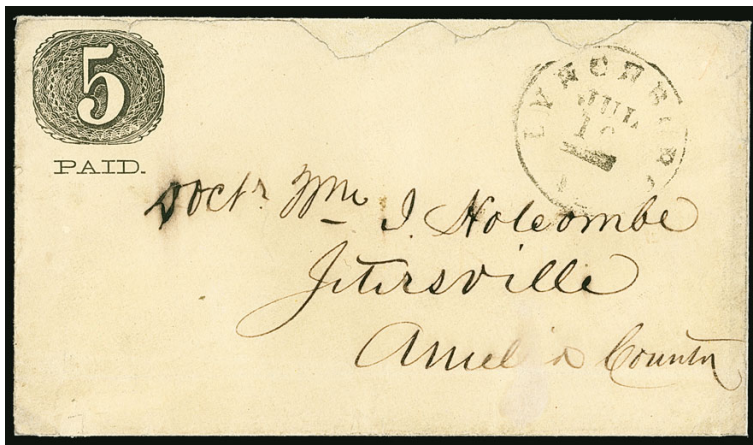 5
PAID.
LYNCHBUR
JUL
Doctr Wm J. Holcombe
Jetersville
Amelia County